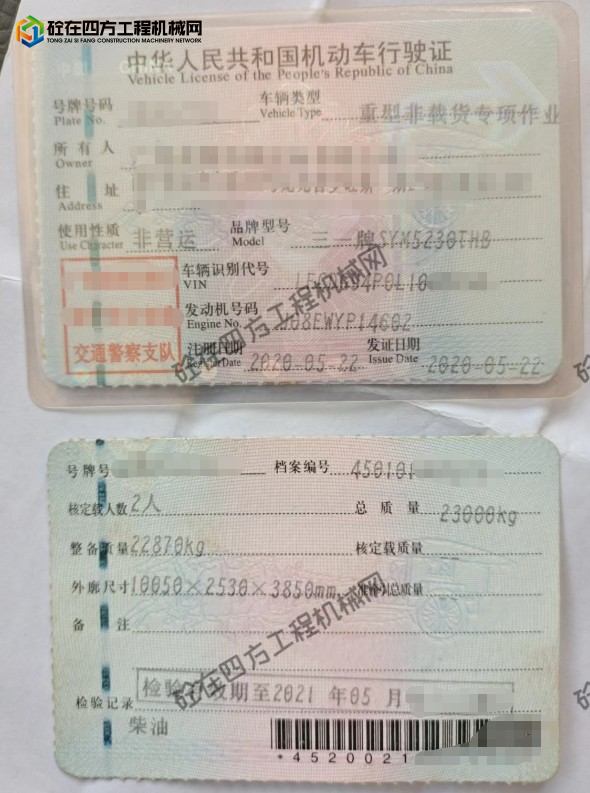 砼在四方工程机械网
TONG ZAI SI FANG CONSTRUCTION MACHINERY NETWORK
中华人民共和国机动车行驶证
Vehicle License of the People's Republic of China
号牌号码 车辆类型 重型非载货专项作业
Plate No. Vehicle Type
所有人
Owner
住址
Address
使用性质 非营运 品牌型号 三一牌SYM5230THB
Use Character Model
车辆识别代号
VIN
发动机号码
Engine No.
交通警察支队
注册日期 2020-05-22 发证日期 2020-05-22
Register Date Issue Date
砼在四方工程机械网
号牌号 档案编号 450101
核定载人数 2人 总质量 23000kg
整备质量 22870kg 核定载质量 --
外廓尺寸 10050×2530×3850mm 总质量 --
备注
砼在四方工程机械网
检验记录 检验有效期至2021年05月
柴油
*4520021